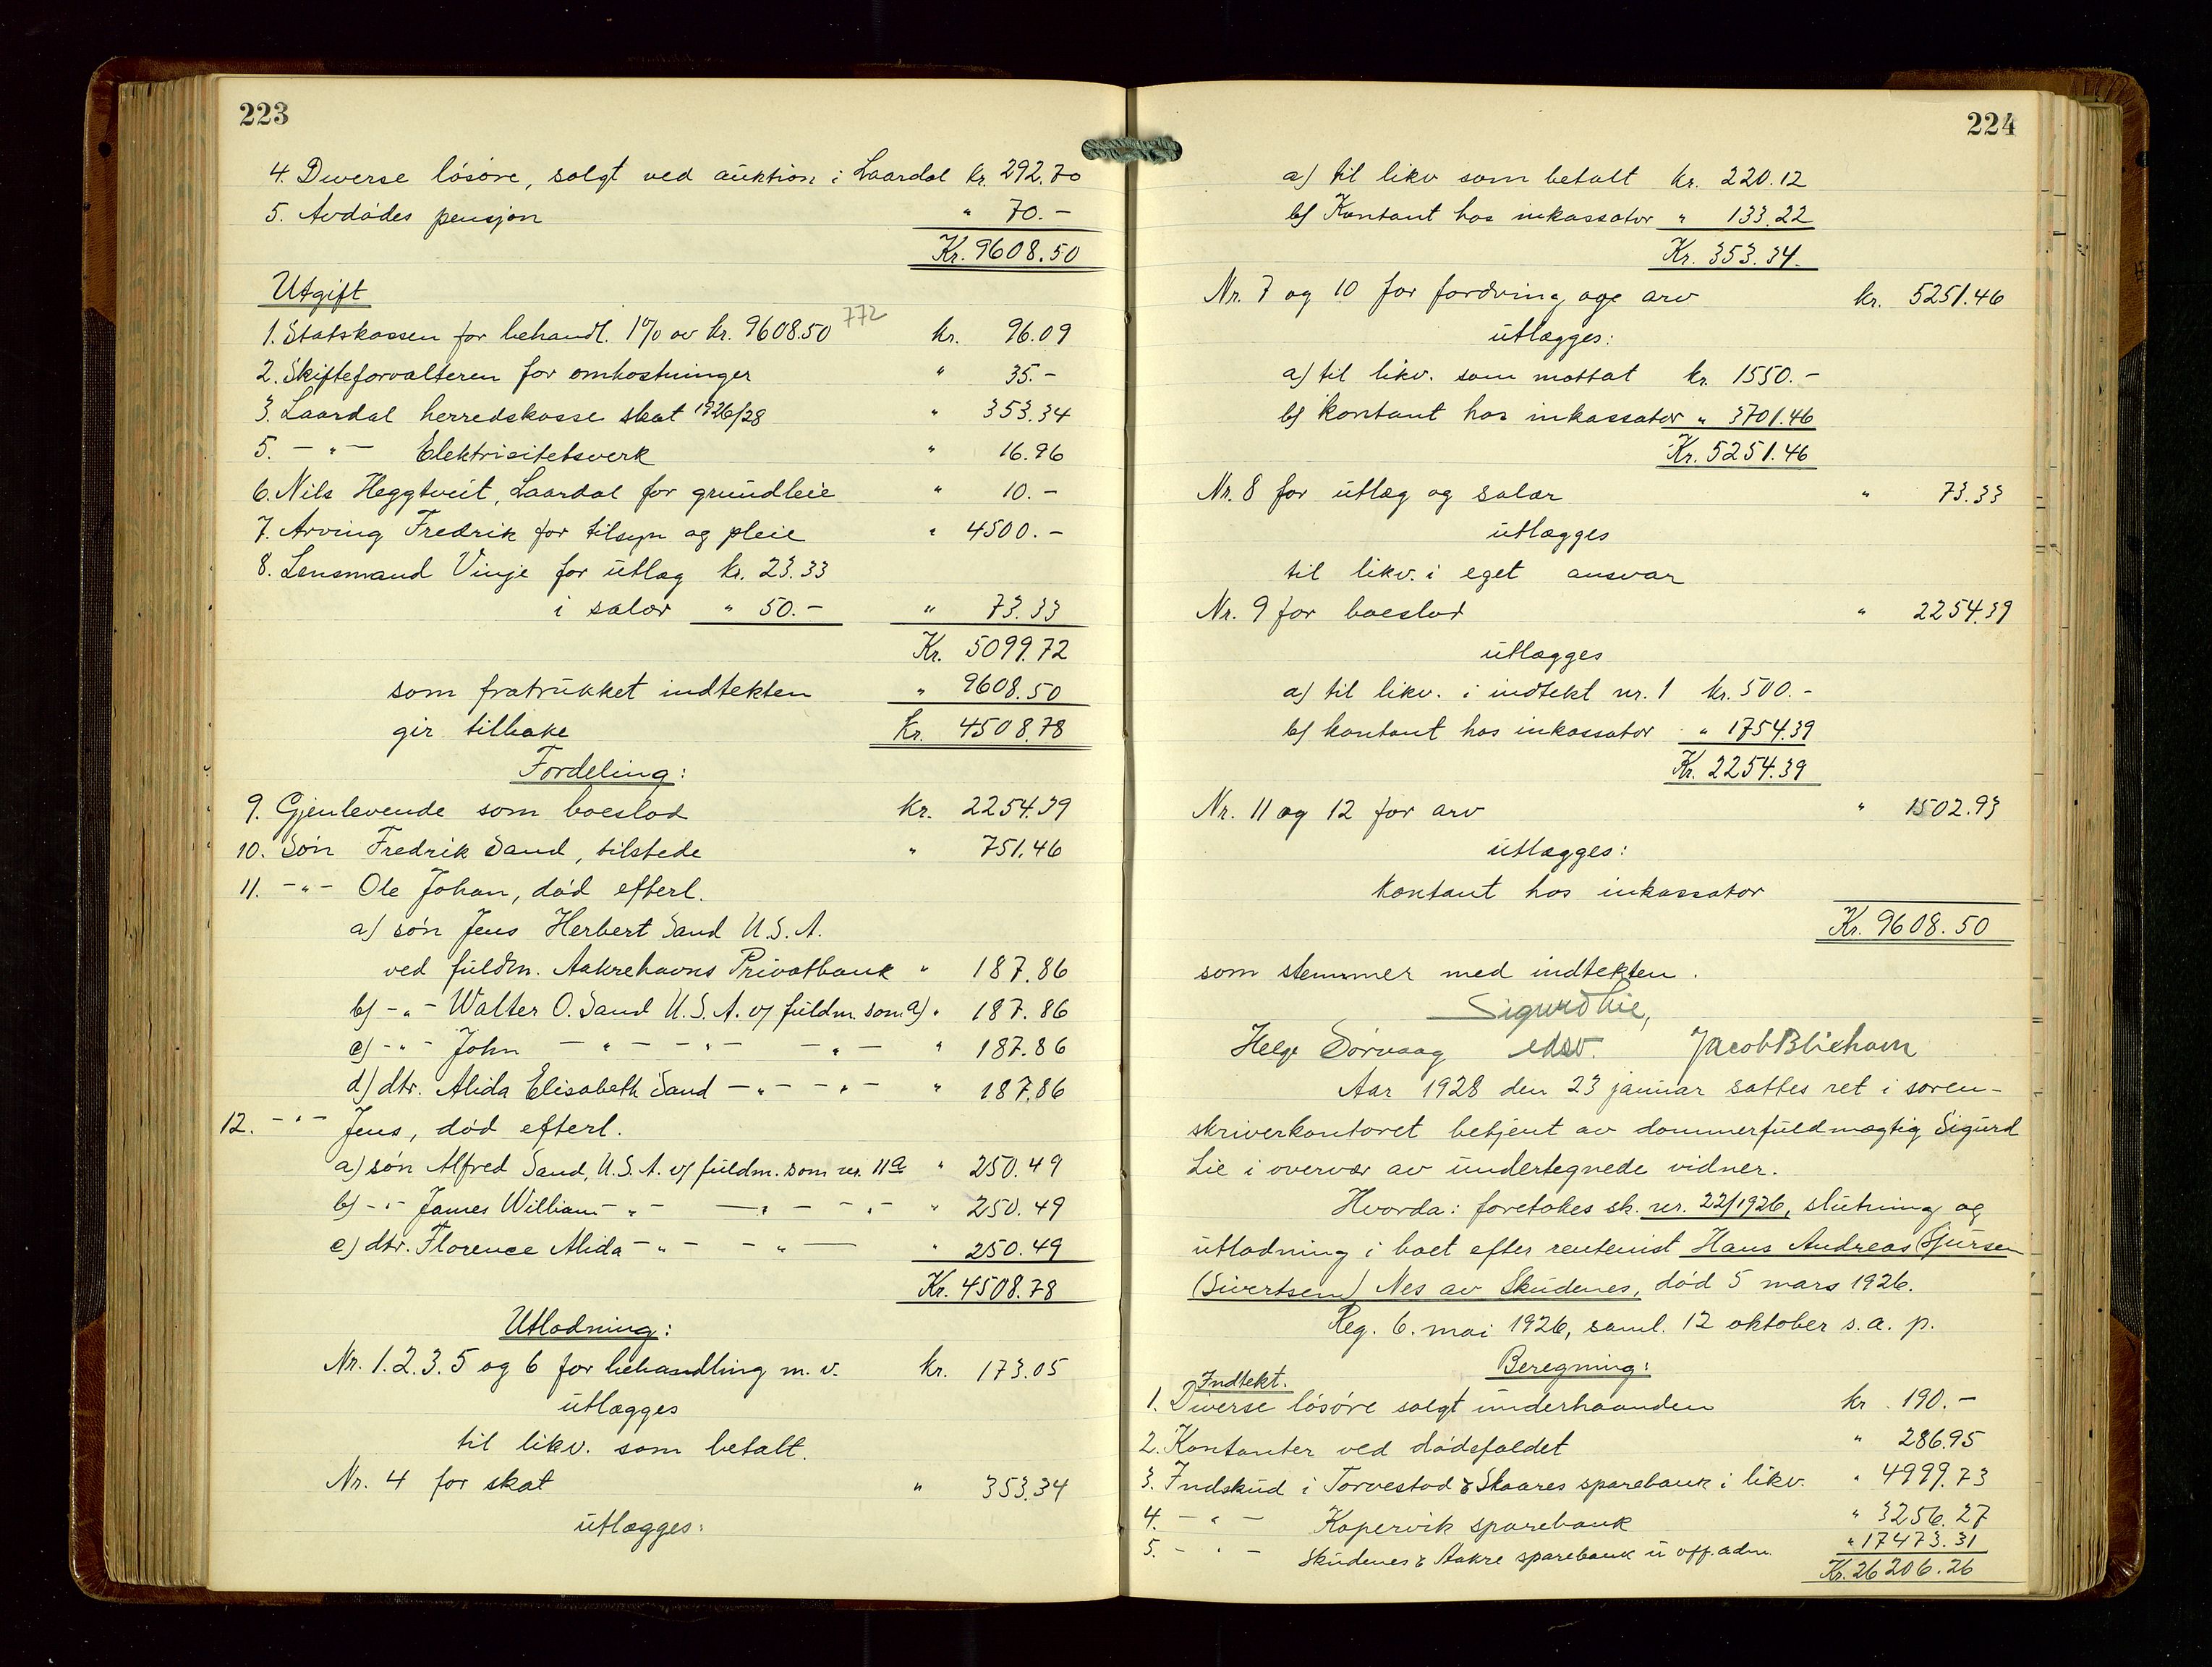 223
4. Diverse løsøre, solgt ved auktion i Laardal kr. 292.70
5. Avdødes pensjon " 70.-
Kr. 9608.50
Utgift
772
1. Statskassen for behandl. 1% av kr. 9608.50 kr. 96.09
2. Skifteforvalteren for omkostninger " 35.-
3. Laardal herredskasse skat 1926/28 " 353.34
5. - " - Elektrisitetsverk " 16.96
6. Nils Heggtveit, Laardal for grundleie " 10.-
7. Arving Fredrik for tilsyn og pleie " 4500.-
8. Lensmand Vinje for utlæg kr. 23.33
i salær " 50.- " 73.33
Kr. 5099.72
som fratrukket indtekten " 9608.50
gir tilbake Kr. 4508.78
Fordeling:
9. Gjenlevende som boeslod kr. 2254.39
10. Søn Fredrik Sand, tilstede " 751.46
11. - " - Ole Johan, død efterl.
a) søn Jens Herbert Sand U.S.A.
ved fuldm. Aakrehavns Privatbank " 187.86
b) - " - Walter O. Sand U.S.A. v/ fuldm. som a) " 187.86
c) - " - John - " - - " - - " - " 187.86
d) dtr. Alida Elisabeth Sand - " - - " - " 187.86
12. - " - Jens, død efterl.
a) søn Alfred Sand, U.S.A. v/ fuldm. som nr. 11a " 250.49
b) - " - James William - " - - " - - " - " 250.49
c) dtr. Florence Alida - " - - " - " 250.49
Kr. 4508.78
Utlodning:
Nr. 1.2.3.5 og 6 for behandling m.v. kr. 173.05
utlægges
til likv. som betalt.
Nr. 4 for skat " 353.34
utlægges:
224
a) til likv som betalt kr. 220.12
b) Kontant hos inkassator " 133.22
Kr. 353.34.
Nr. 7 og 10 for fordring og arv kr. 5251.46
utlægges:
a) til likv. som mottat kr. 1550.-
b) kontant hos inkassator " 3701.46
Kr. 5251.46
Nr. 8 for utlæg og salær " 73.33
utlægges
til likv. i eget ansvar
Nr. 9 for boeslod " 2254.39
utlægges
a) til likv. i indtekt nr. 1 kr. 500.-
b) kontant hos inkassator " 1754.39
Kr. 2254.39
Nr. 11 og 12 for arv " 1502.93
utlægges:
kontant hos inkassator
Kr. 9608.50
som stemmer med indtekten.
Sigurd Lie,
edsv.
Helge Sørvaag Jacob Blixhavn
Aar 1928 den 23 januar sattes ret i soren-
skriverkontoret betjent av dommerfuldmægtig Sigurd
Lie i overvær av undertegnede vidner.
Hvorda: foretokes sk. nr. 22/1926, slutning og
utlodning i boet efter rentenist Hans Andreas Sjursen
(Sivertsen) Nes av Skudenes, død 5 mars 1926.
Reg. 6. mai 1926, saml. 12 oktober s.a. p.
Beregning:
Indtekt.
1. Diverse løsøre solgt underhaanden kr. 190.-
2. Kontanter ved dødsfaldet " 286.95
3. Indskud i Torvestad & Skaares sparebank i likv. " 4999.73
4. - " - Kopervik sparebank " 3256.27
5. - " - Skudenes & Aakre sparebank u off. adm. " 17473.31
Kr. 26206.26